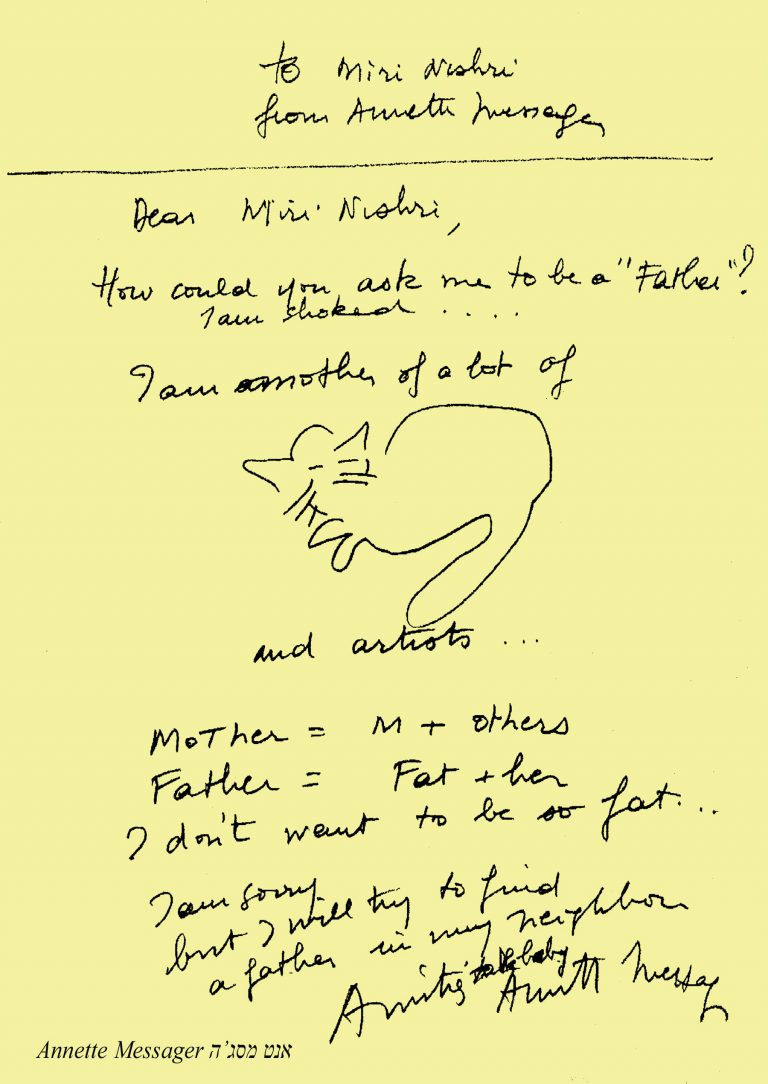 to Miri Nishri
from Annette Messager
Dear Miri Nishri,
How could you ask me to be a "Father"?
I am shoked ....
I am a mother of a lot of
and artists ...
MoTher = M + others
Father = Fat + her
I don't want to be so fat...
I am sorry
but I will try to find
a father in my neighbour
Amitiés baby
Annette Messager
Annette Messager אנט מסג'ה